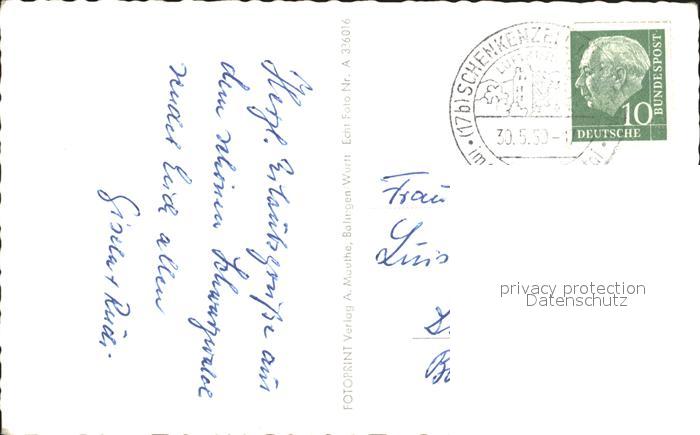 Herzl. Urlaubsgrüße aus
dem schönen Schwarzwald
sendet Euch allen
Gisela + Rudi.
FOTOPRINT Verlag A. Mauthe, Balingen Württ Echt Foto Nr. A 336016
(17b) SCHENKENZE
30.5.59-1
im
tal
10
DEUTSCHE
BUNDESPOST
Frau
Luis
privacy protection
Datenschutz